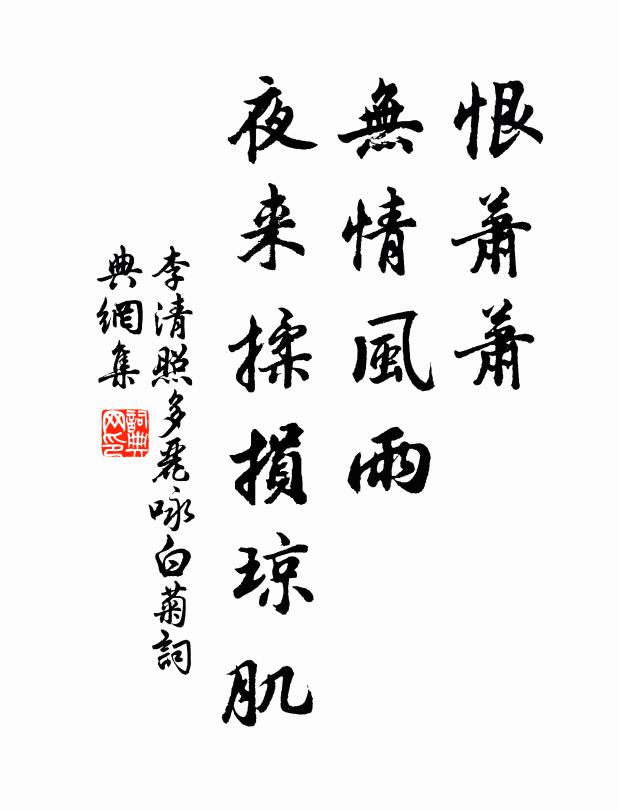 恨蕭蕭
無情風雨
夜来揉損琼肌
李清照多麗咏白菊詞
典網集
詞典网印